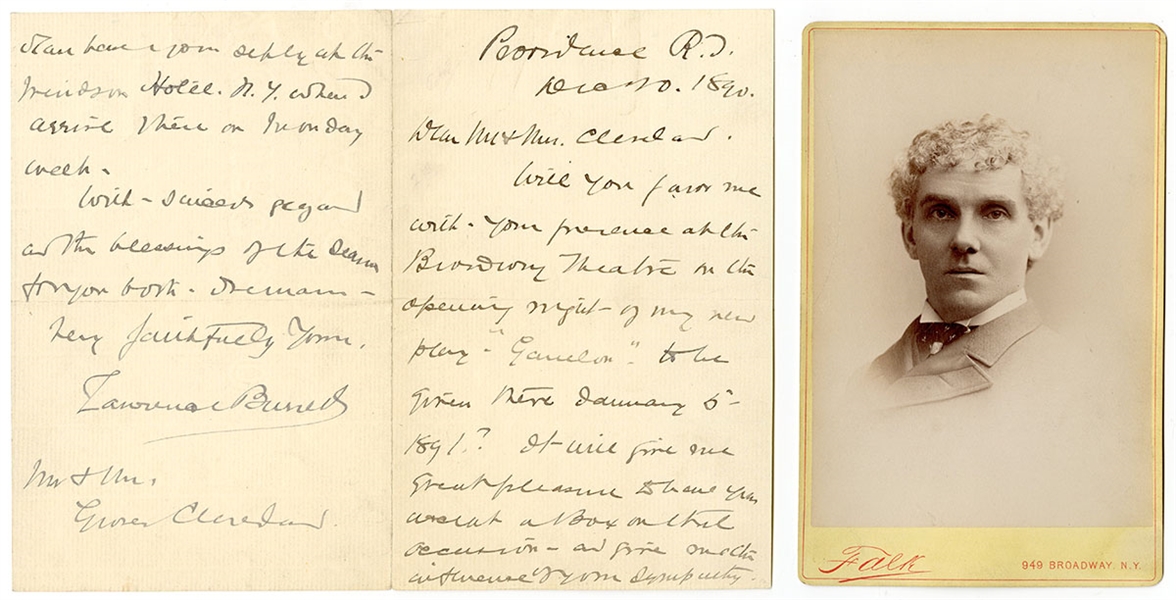 Providence R.I.
Dec 20. 1890.
Dear Mr & Mrs. Cleveland.
Will you favor me
with - your presence at the
Broadway Theatre on the
opening night - of my new
play - "Ganelon". to be
given there January 5-
1891.? It will give me
great pleasure to have you
accept a Box on that
occasion - and give me the
influence of your sympathy.
have your reply at the
Windsor Hotel. N.Y. when I
arrive there on Monday
week.
With - sincere regard
and the blessings of the season
for you both - I remain -
Very faithfully Yours,
Lawrence Barrett
Mr & Mrs.
Grover Cleveland.
Falk
949 BROADWAY. N.Y.